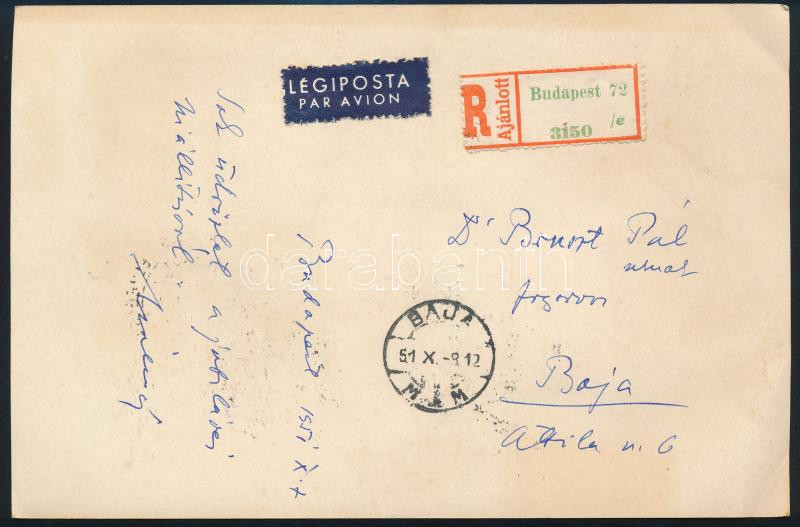 LÉGIPOSTA
PAR AVION
R
Ajánlott
Budapest 72
3150 /e
Sok üdvözlet a jubiláris
Budapest 1951 X.
Dr Pál
fogorvos
Baja
Attila u. 6
BAJA
51 X.-8.12
darabanth